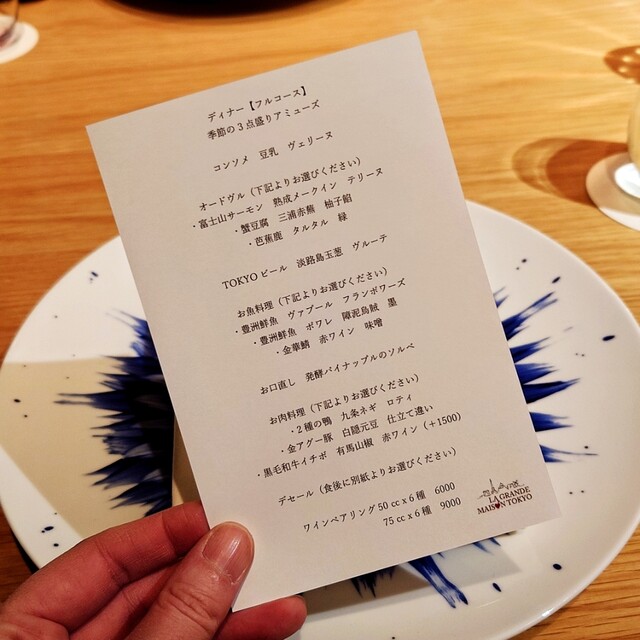 ディナー【フルコース】
季節の3点盛りアミューズ
コンソメ 豆乳 ヴェリーヌ
オードヴル（下記よりお選びください）
・富士山サーモン 熟成メークイン テリーヌ
・蟹豆腐 三浦赤蕪 柚子餡
・芭蕉鹿 タルタル 緑
TOKYOビール 淡路島玉葱 ヴルーテ
お魚料理（下記よりお選びください）
・豊洲鮮魚 ヴァプール フランボワーズ
・豊洲鮮魚 ポワレ 障泥烏賊 墨
・金華鯖 赤ワイン 味噌
お口直し 発酵パイナップルのソルベ
お肉料理（下記よりお選びください）
・2種の鴨 九条ネギ ロティ
・金アグー豚 白隠元豆 仕立て違い
・黒毛和牛イチボ 有馬山椒 赤ワイン（+1500）
デセール（食後に別紙よりお選びください）
ワインペアリング50 cc x 6種 6000
75 cc x 6種 9000
LA GRANDE
MAISON TOKYO